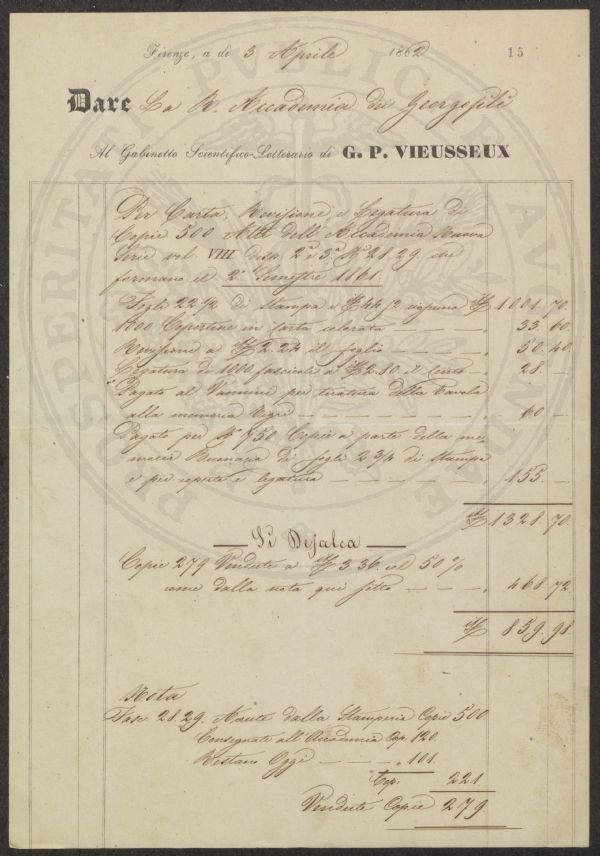 Firenze, a dì 3 Aprile 1862 15
Dare La R. Accademia dei Georgofili
Al Gabinetto Scientifico-Letterario di G. P. VIEUSSEUX
Per Carta, Revisione, e Legatura di
Copie 500 Atti dell'Accademia Nuova
Serie vol. VIII disp. 2ª e 3ª Nº 28. 29. che
formano il 2º Semestre 1861.
Fogli 22 1/2 di Stampa a 44 1/2 ognuno 1001. 70.
1000 Copertine in carta colorata 33. 60.
Revisione a 2. 24 il foglio 50. 40.
Legatura di 1000 fascicoli a 2. 80. il Cento 28. —
Pagato al Vannini per tiratura della Tavola
alla memoria 60 —
Pagato per Nº 750 Copie a parte della me-
moria di fogli 2 3/4 di Stampa
e più coperte e legatura 155. —
1328. 70.
Si Defalca
Copie 279 Vendute a 3. 36. col 50 %
come dalla nota qui sotto 468. 72
859. 98.
Nota
Fasc. 28. 29. Avute dalla Stamperia Copie 500
Consegnate all'Accademia Cop. 120.
Restano Oggi 101.
Cop. 221
Vendute Copie 279.
PROSPERITATI PVBLICAE AVGENDAE